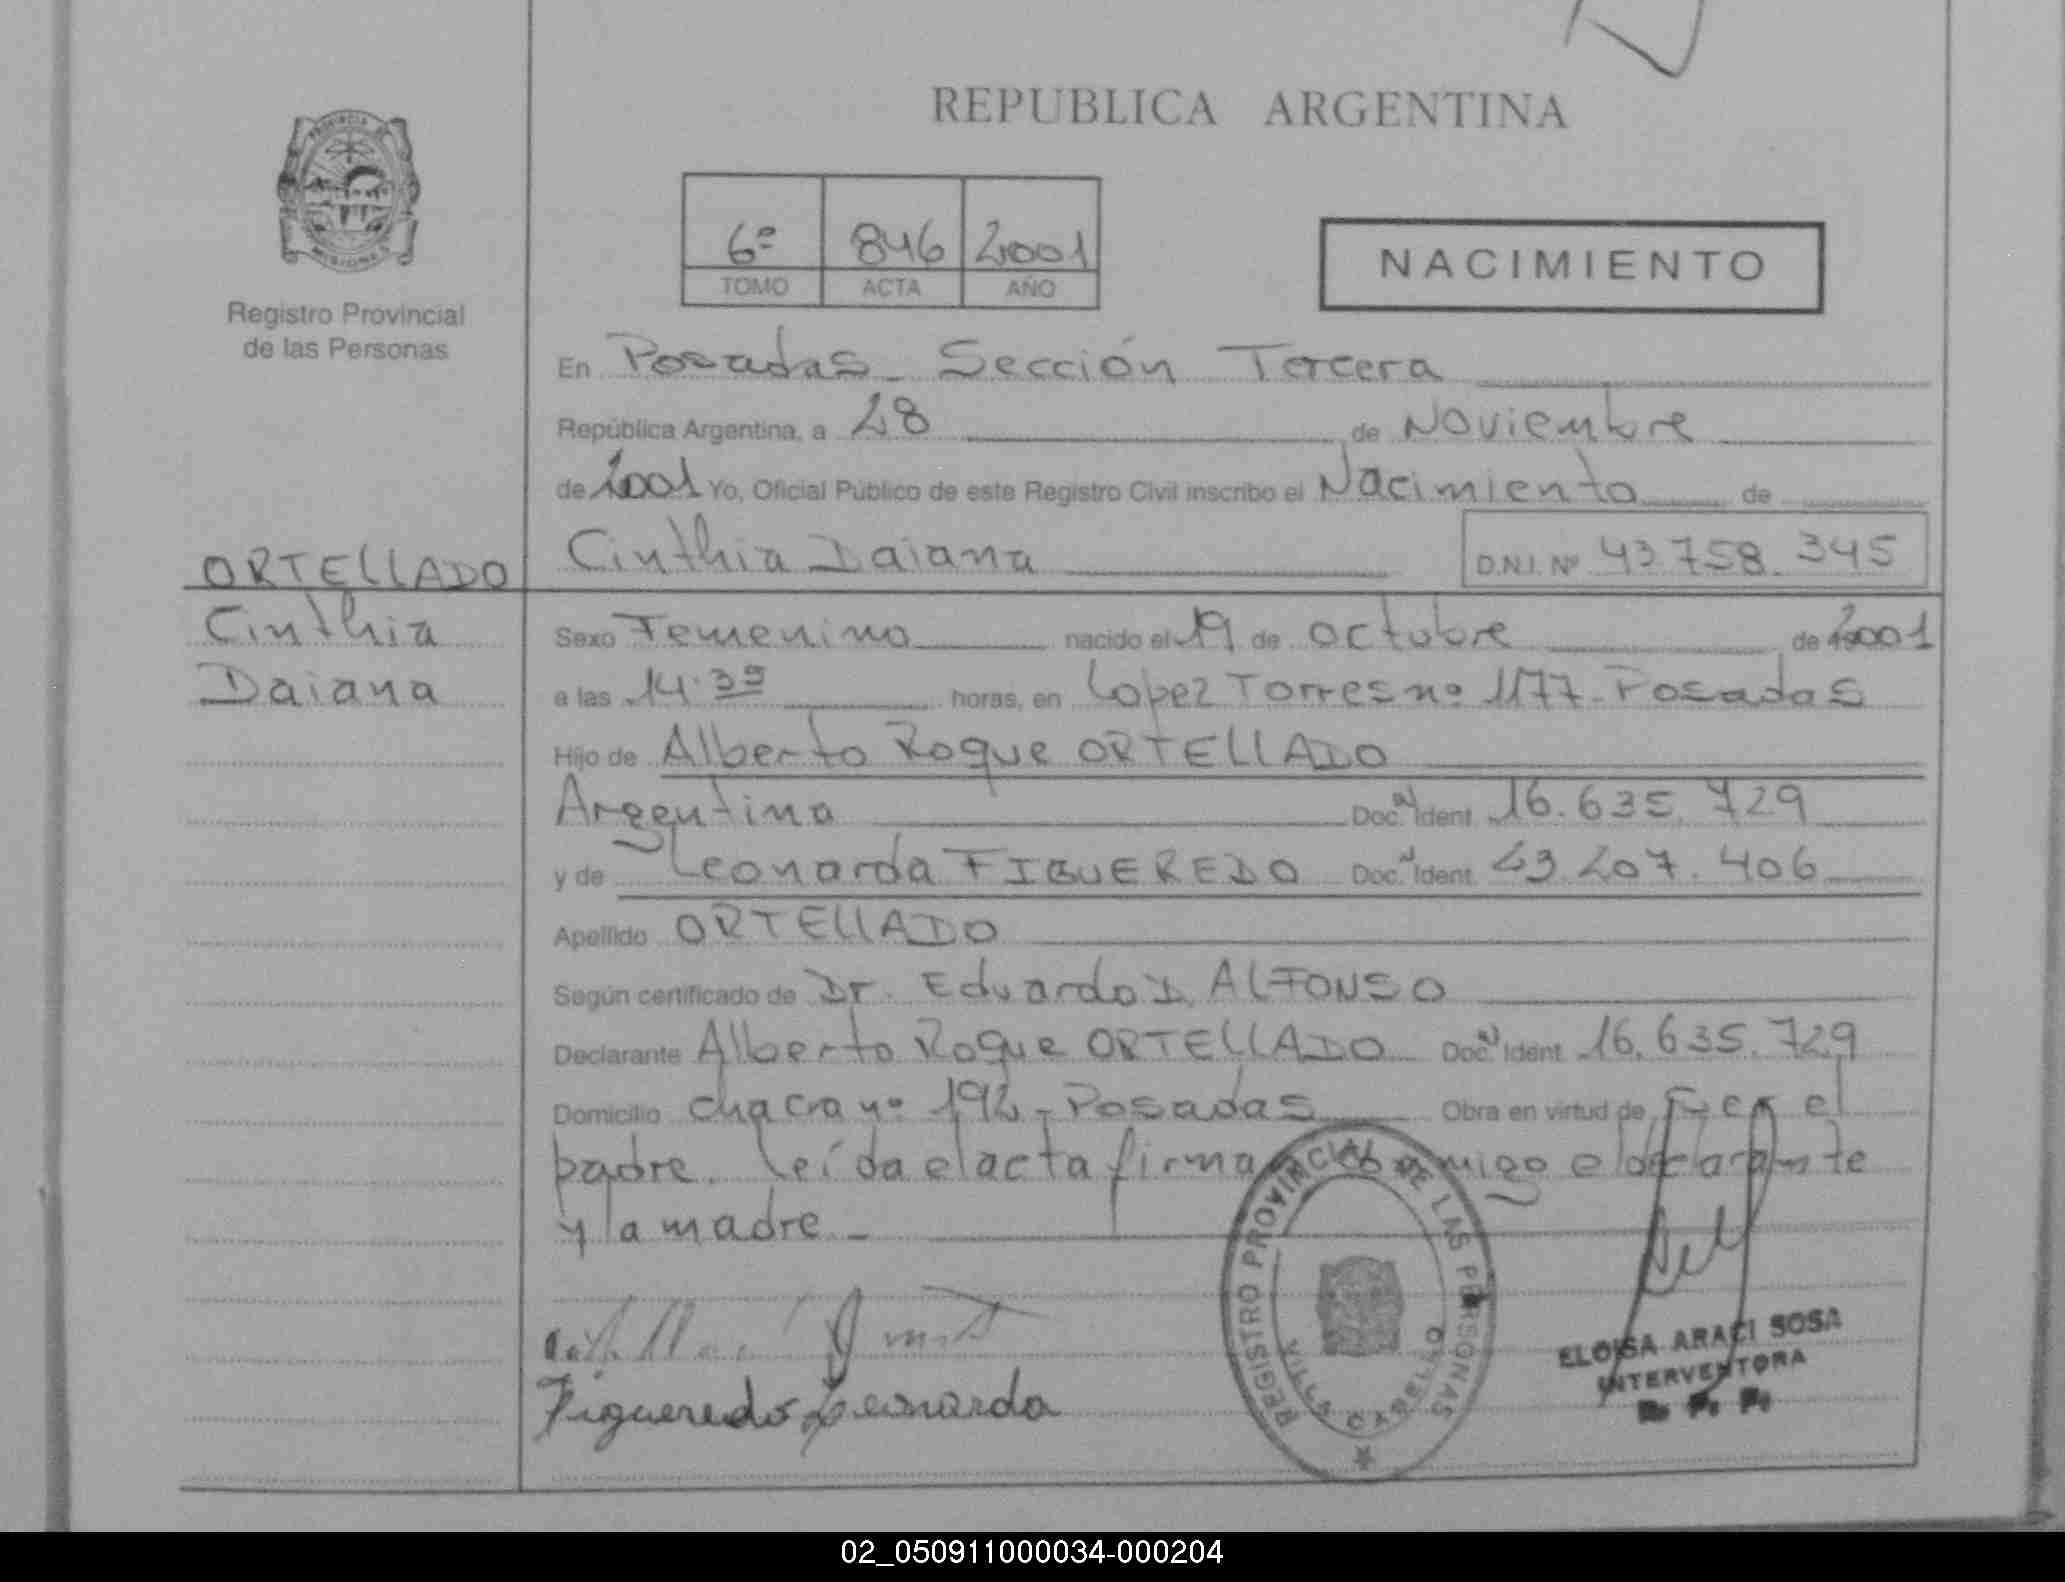 REPUBLICA ARGENTINA
PROVINCIA DE
MISIONES
Registro Provincial
de las Personas
6º 846 2001
TOMO ACTA AÑO
NACIMIENTO
En Posadas - Sección Tercera
República Argentina, a 28 de Noviembre
de 2001 Yo, Oficial Público de este Registro Civil inscribo el Nacimiento de
Cinthia Daiana D.N.I. Nº 43.758.345
ORTELLADO
Cinthia
Daiana
Sexo Femenino nacido el 19 de octubre de 2001
a las 14.35 horas, en Lopez Torres nº 1177 - Posadas
Hijo de Alberto Roque ORTELLADO
Argentina Doc. Ident. 16.635.729
y de Leonarda FIGUEREDO Doc. Ident. 23.207.406
Apellido ORTELLADO
Según certificado de Dr. Eduardo D. ALFONSO
Declarante Alberto Roque ORTELLADO Doc. Ident. 16.635.729
Domicilio chacra nº 192 - Posadas Obra en virtud de ser el
padre. leída el acta firma conmigo el declarante
y la madre -
Figueredo Leonarda
REGISTRO PROVINCIAL DE LAS PERSONAS
VILLA CABELLO
ELOISA ARACI SOSA
INTERVENTORA
R. P. P.
02_050911000034-000204